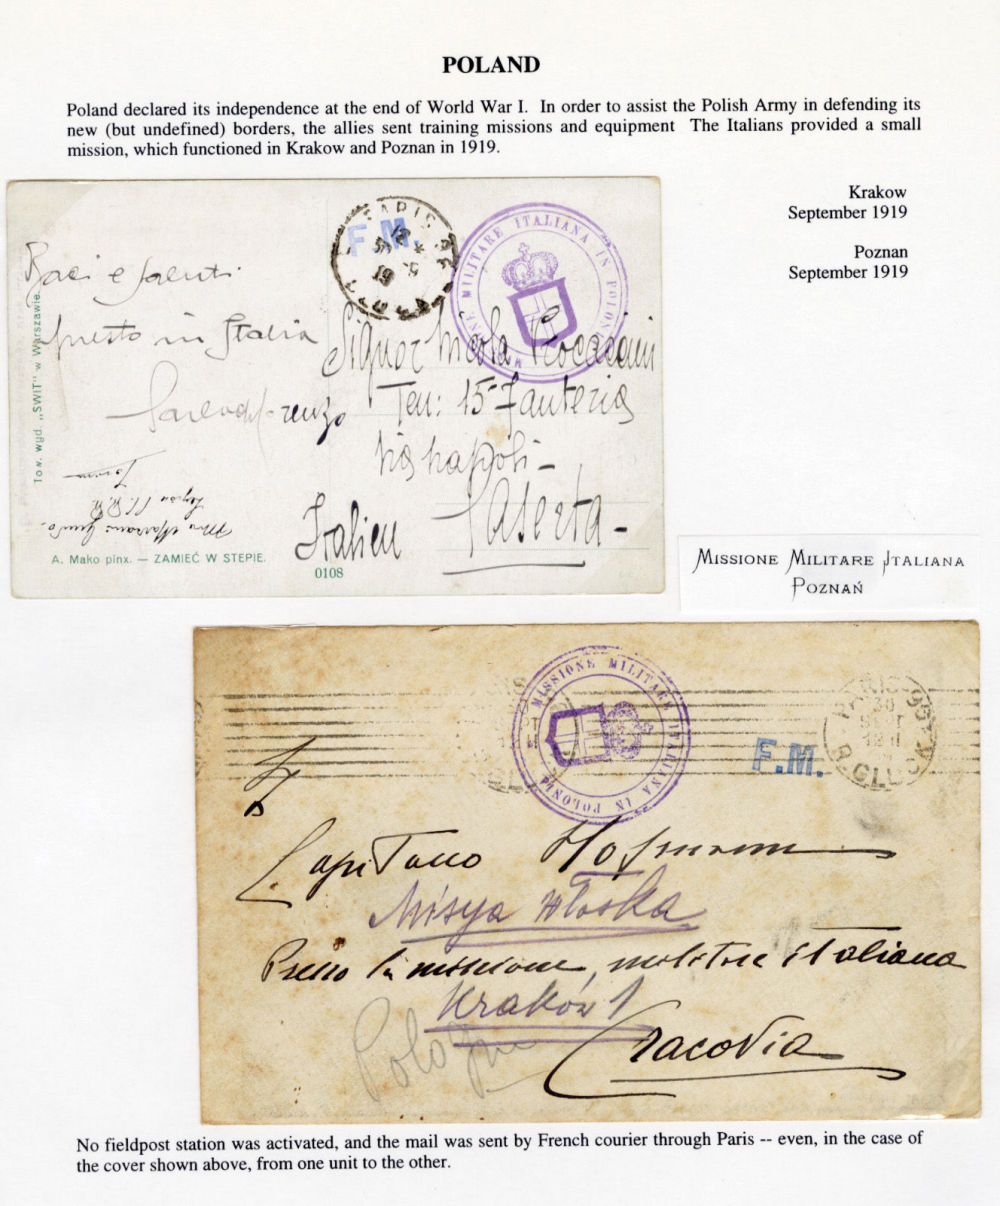 POLAND
Poland declared its independence at the end of World War I. In order to assist the Polish Army in defending its
new (but undefined) borders, the allies sent training missions and equipment The Italians provided a small
mission, which functioned in Krakow and Poznan in 1919.
Krakow
September 1919
Poznan
September 1919
PARIS
F.M.
MISSIONE MILITARE ITALIANA IN POLONIA
Baci e saluti
presto in Italia
Signor Nicola
Ten: 15 Fanteria
Napoli -
Caserta -
Italien
Tow. wyd. „ŚWIT" w Warszawie.
A. Mako pinx. — ZAMIEĆ W STEPIE.
0108
MISSIONE MILITARE ITALIANA
POZNAŃ
MISSIONE MILITARE ITALIANA IN POLONIA
F.M.
PARIS
30
R. GLUCK
Capitano
Misya Włoska
Presso la missione militare italiana
Kraków 1
Cracovia
Pologne
No fieldpost station was activated, and the mail was sent by French courier through Paris -- even, in the case of
the cover shown above, from one unit to the other.